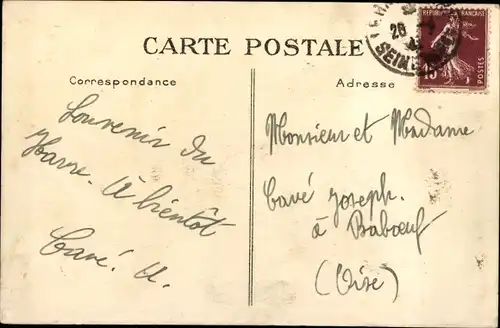 CARTE POSTALE
Correspondance
Souvenir du
Havre. A bientôt
Cavé. A.
Adresse
Monsieur et Madame
Cavé Joseph.
à Baboeuf
(Oise)
REPUBLIQUE FRANÇAISE
15
POSTES
28
SEINE